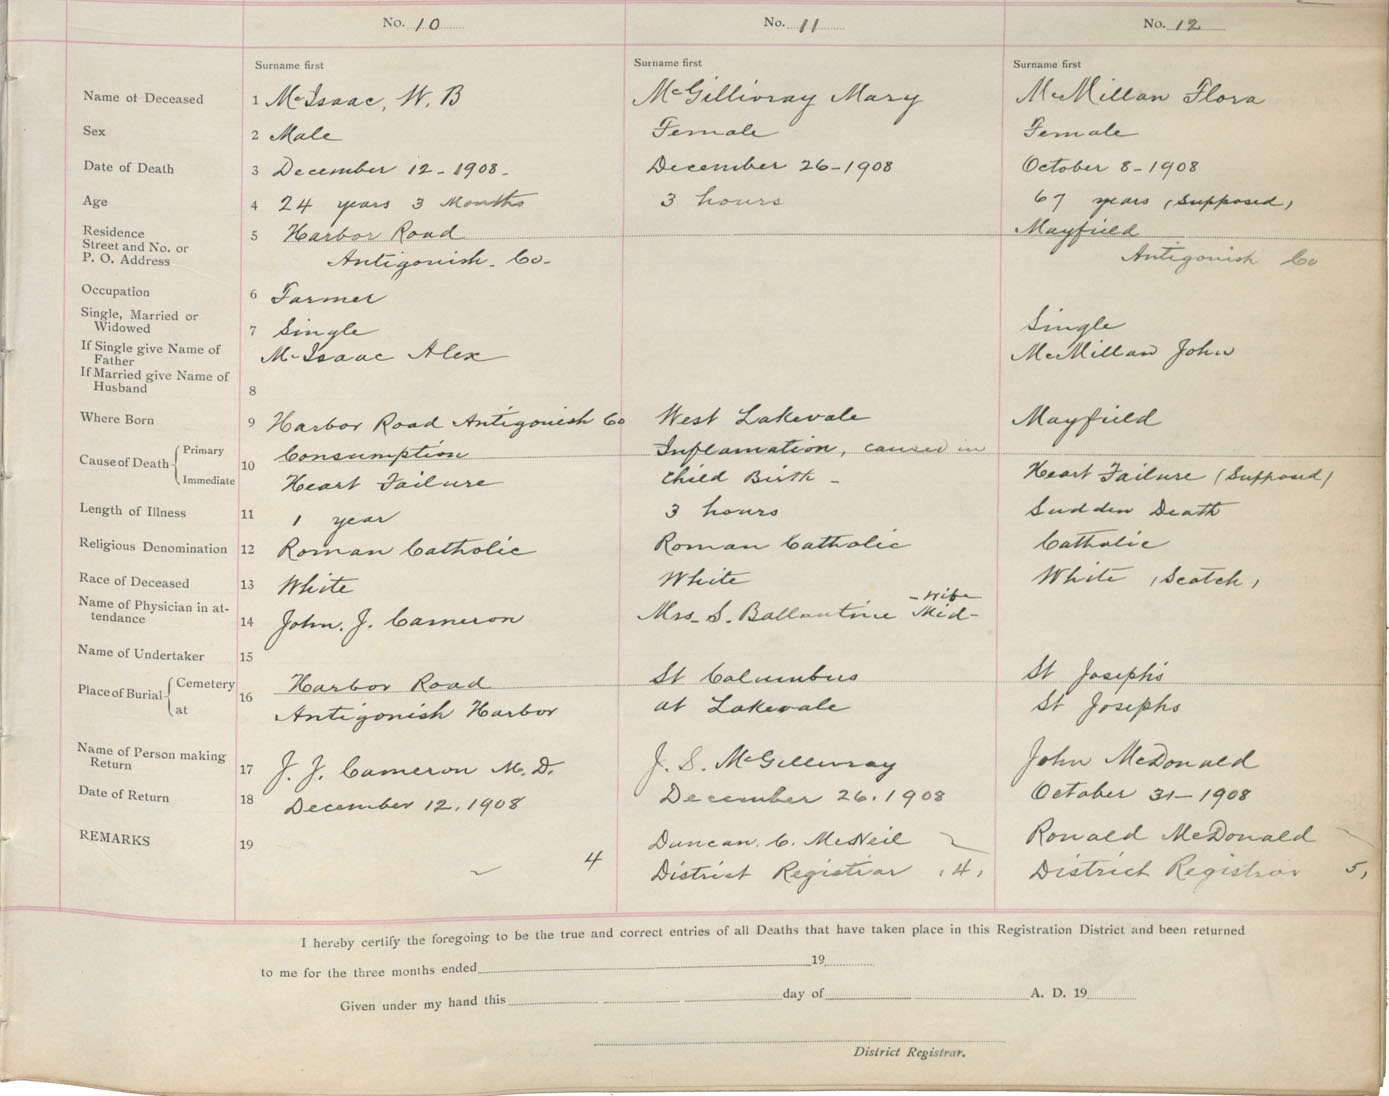 No. 10 No. 11 No. 12
Surname first Surname first Surname first
Name of Deceased 1 McIsaac, W. B McGillivray Mary McMillan Flora
Sex 2 Male Female Female
Date of Death 3 December 12 - 1908 - December 26 - 1908 October 8 - 1908
Age 4 24 years 3 Months 3 hours 67 years (Supposed)
Residence 5 Harbor Road Mayfield
Street and No. or
P. O. Address Antigonish - Co - Antigonish Co
Occupation 6 Farmer
Single, Married or
Widowed 7 Single Single
If Single give Name of
Father McIsaac Alex McMillan John
If Married give Name of
Husband 8
Where Born 9 Harbor Road Antigonish Co West Lakevale Mayfield
Cause of Death Primary 10 Consumption Inflamation, caused in
Immediate Heart Failure Child Birth - Heart Failure (Supposed)
Length of Illness 11 1 year 3 hours Sudden Death
Religious Denomination 12 Roman Catholic Roman Catholic Catholic
Race of Deceased 13 White White White (Scotch)
Name of Physician in at- - wife
tendance 14 John. J. Cameron Mrs. S. Ballantine Mid-
Name of Undertaker 15
Place of Burial Cemetery 16 Harbor Road St Columbus St Josephs
at Antigonish Harbor at Lakevale St Josephs
Name of Person making
Return 17 J. J. Cameron M. D. J. S. McGillivray John McDonald
Date of Return 18 December 12, 1908 December 26, 1908 October 31 - 1908
REMARKS 19 Duncan. C. McNeil Ronald McDonald
4 District Registrar (4) District Registrar 5,
I hereby certify the foregoing to be the true and correct entries of all Deaths that have taken place in this Registration District and been returned
to me for the three months ended 19
Given under my hand this day of A. D. 19
District Registrar.